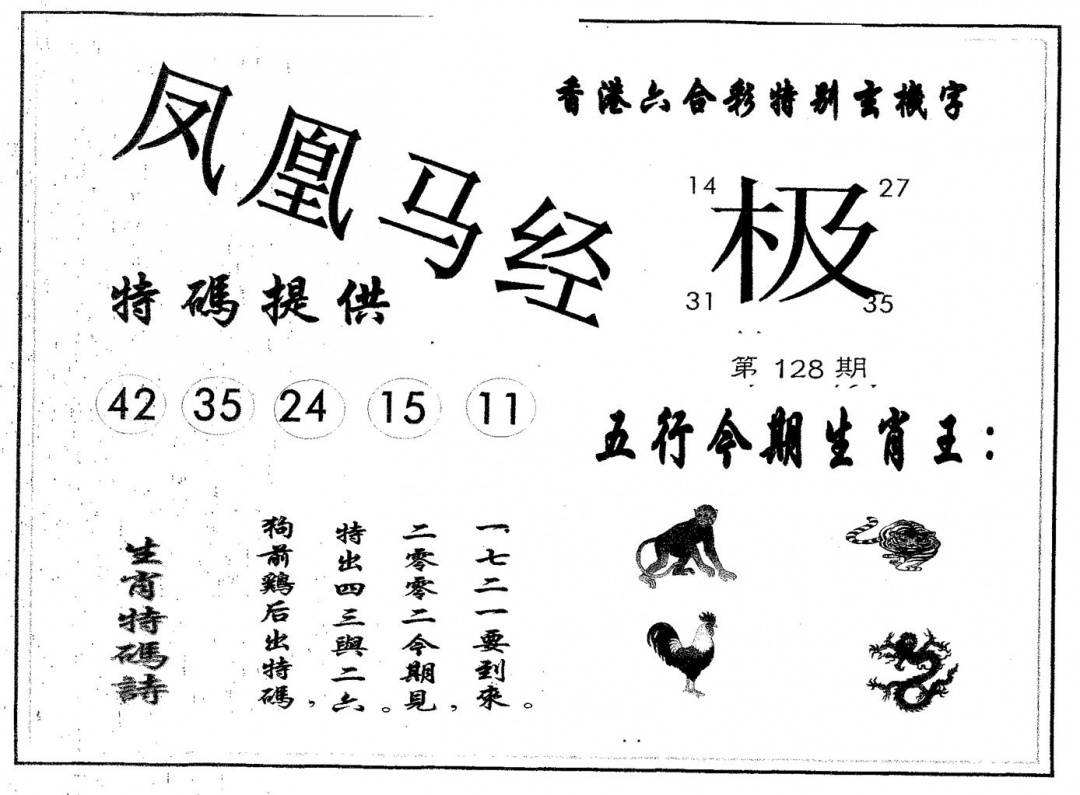 凤凰马经
特碼提供
42 35 24 15 11
生肖特碼詩
狗前鷄后出特碼，
特出四三與二六。
二零零二今期見，
一七二一要到來。
香港六合彩特别玄機字
14 27
极
31 35
第 128 期
五行今期生肖王：